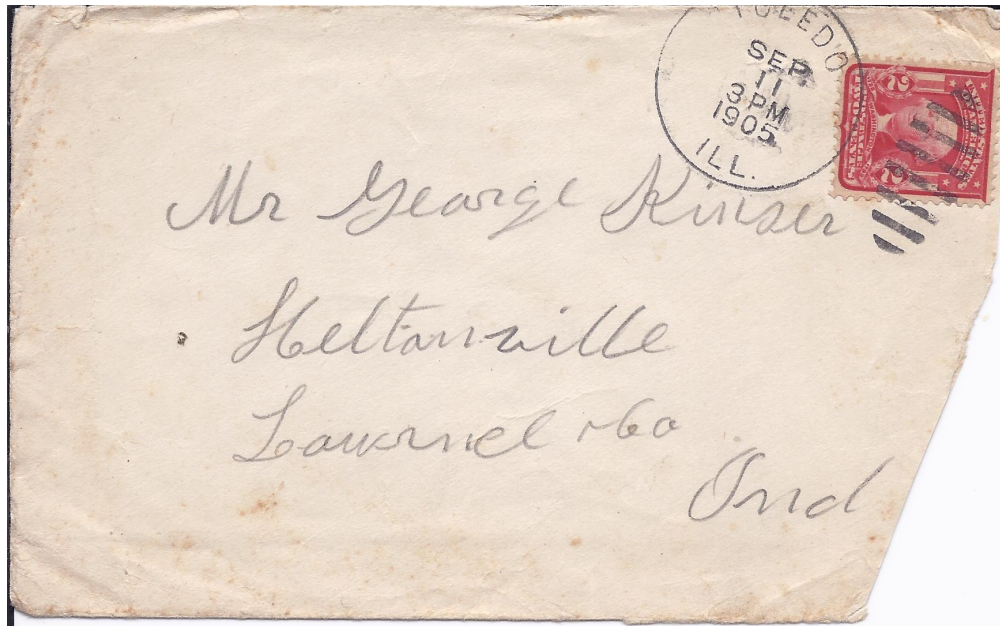 TOLEDO
SEP
11
3 PM
1905
ILL.
2 2
Mr George Kinser
Heltonville
Lawrence Co
Ind